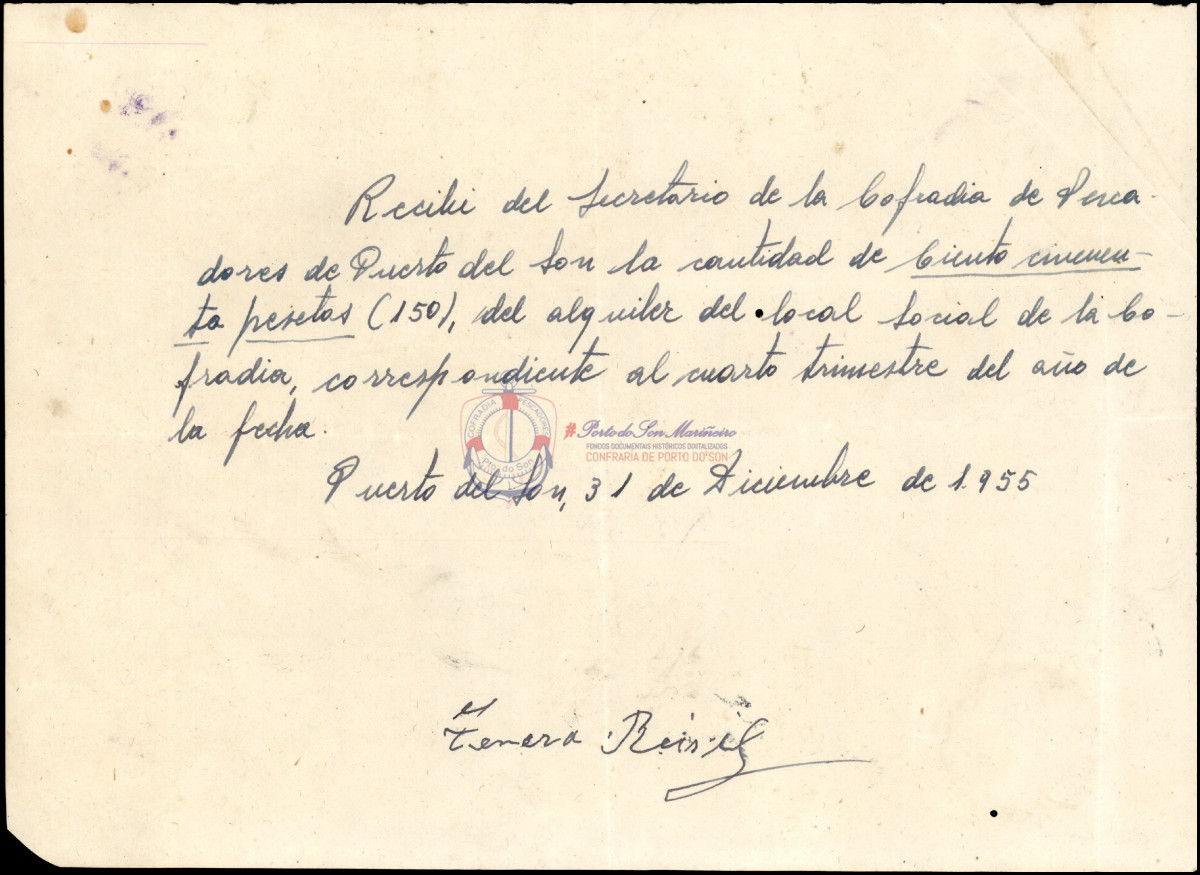 Recibi del Secretario de la Cofradia de Pesca-
dores de Puerto del Son la cantidad de Ciento cincuen-
ta pesetas (150), del alquiler del local social de la Co-
fradia, correspondiente al cuarto trimestre del año de
la fecha.
COFRADIA PESCADORES
Pto. do Son
#Porto do Son Mariñeiro
FONDOS DOCUMENTAIS HISTÓRICOS DIXITALIZADOS
CONFRARÍA DE PORTO DO SON
Puerto del Son, 31 de Diciembre de 1.955